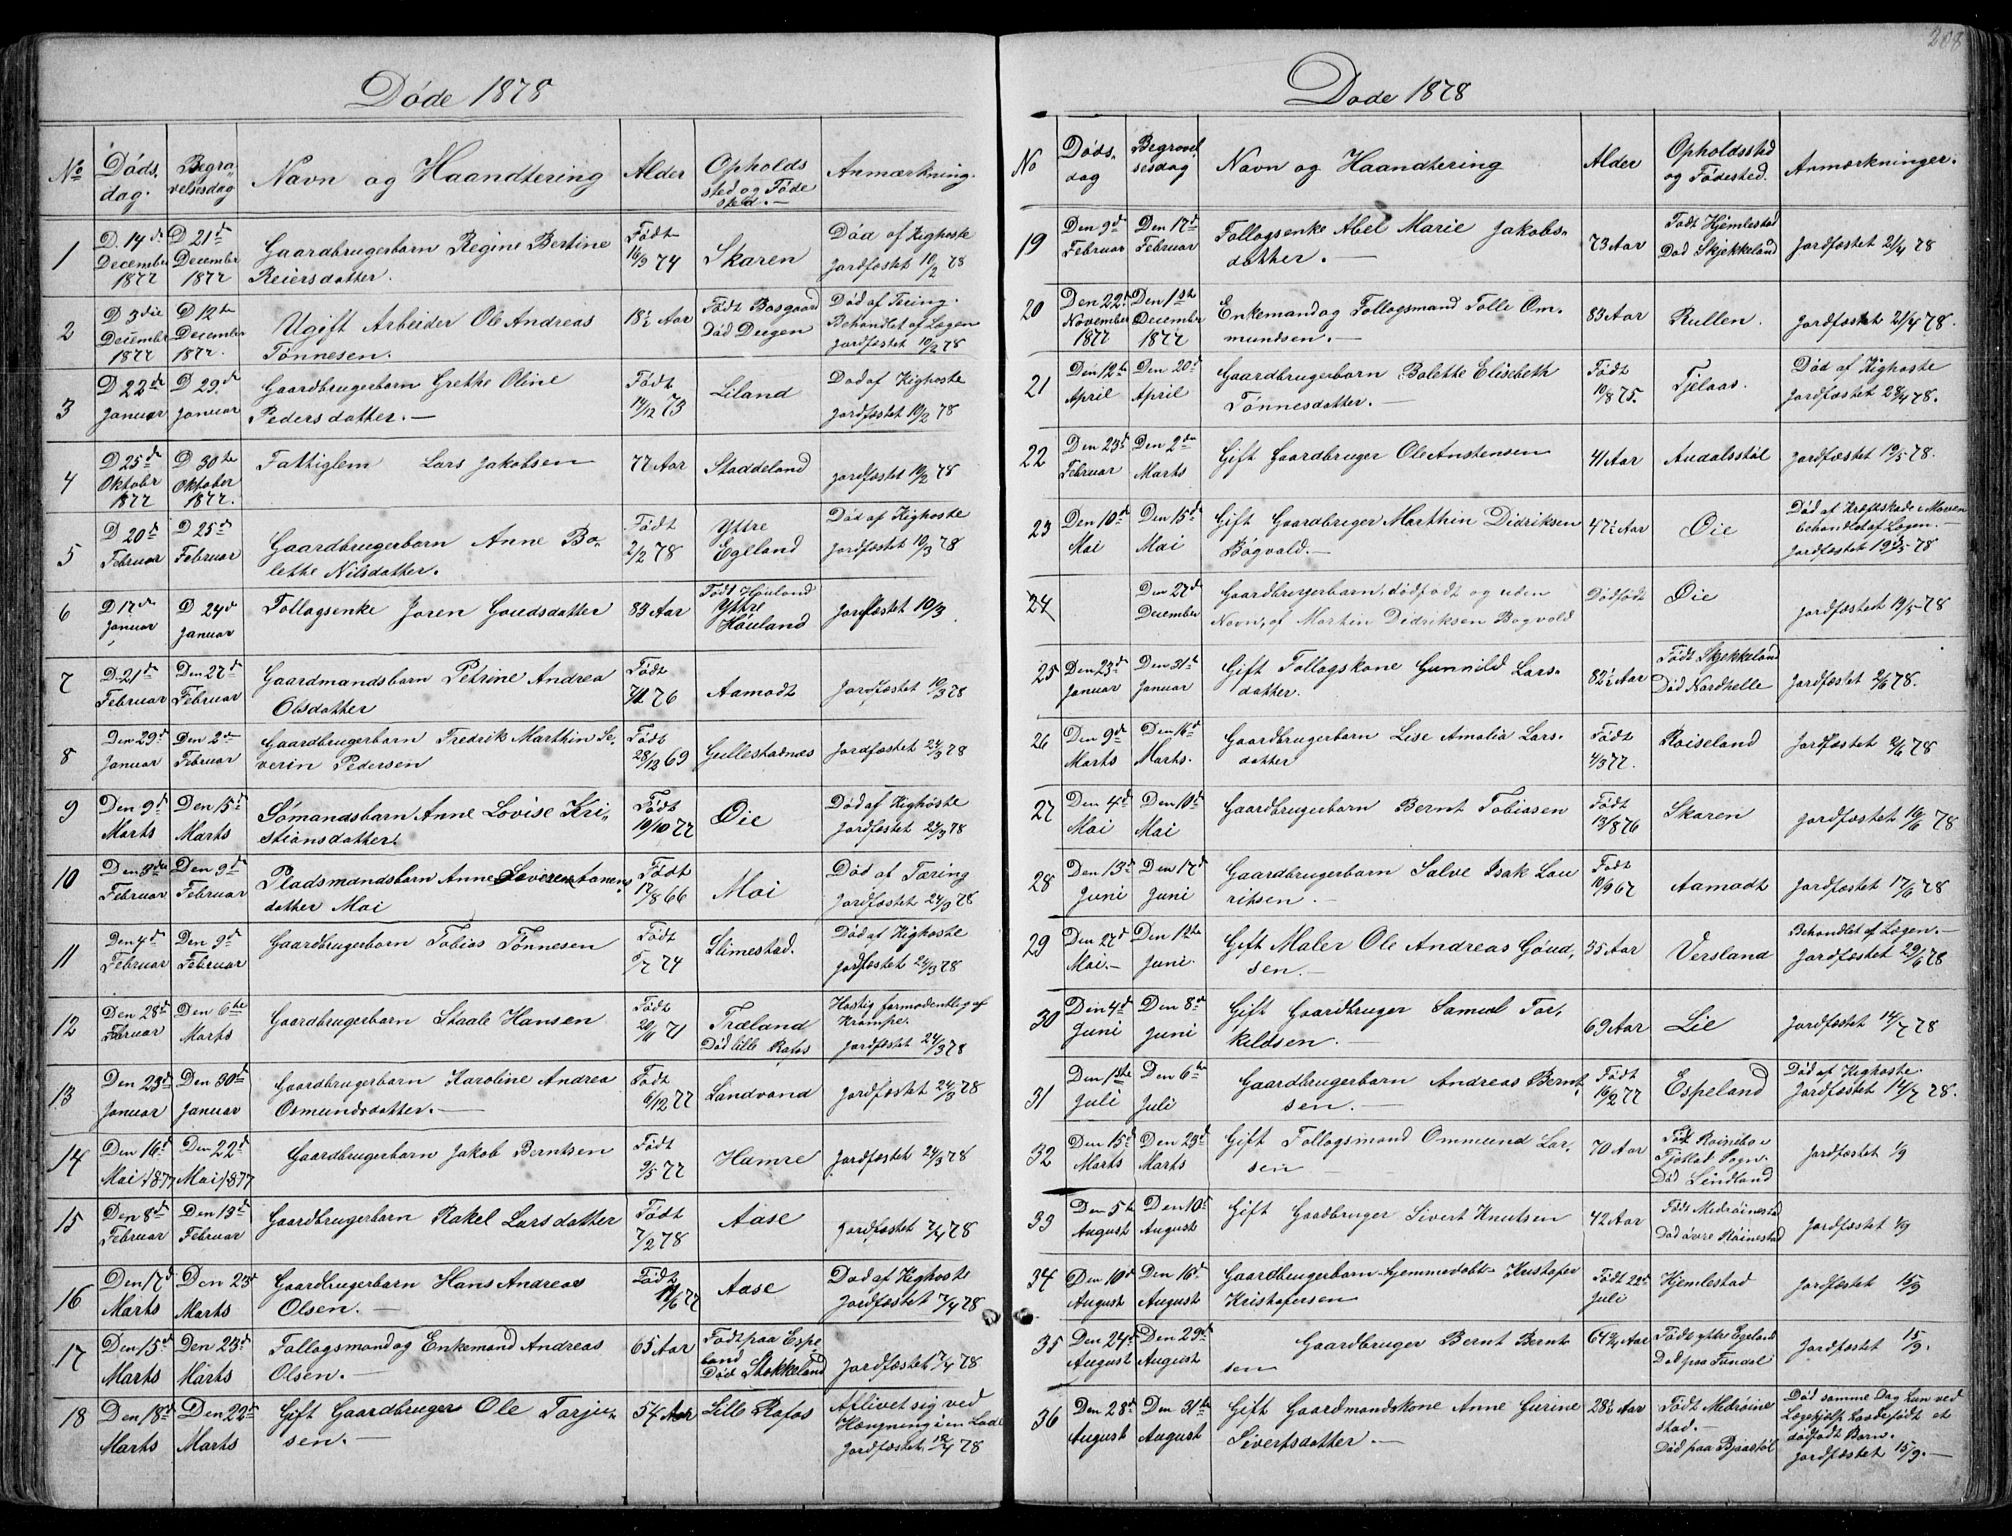 208
Døde 1878
No
Døds,
dag.
Begra,
velsesdag
Navn og Haandtering
Alder
Opholds
sted og Føde
sted.—
Anmærkning.
1
D. 14de
December
1877
D 21de
December
1877
Gaardbrugerbarn Regine Bertine
Reiersdatter.
Født
16/9 74
Skaren
Død af Kighoste
Jordfæstet 10/2 78
2
D 3die
December
1877
D 12te
December
1877.
Ugift Arbeider Ole Andreas
Tønnesen.
18½ Aar
Født Bosgaard
Død Dugen
Død af Tæring.
Behandlet af Lægen
Jordfæstet 10/2 78
3
D 22de
Januar
D 29de
Januar
Gaardbrugerbarn Grethe Oline
Pedersdatter.—
Født
14/12 73
Liland
Død af Kighoste
Jordfæstet 10/2 78
4
D 25de
Oktober
1877
D 30te
Oktober
1877.
Fattiglem Lars Jakobsen
77 Aar
Staddeland
Jordfæstet 10/2 78
5
D 20de
Februar
D 25de
Februar
Gaardbrugerbarn Anne Bo,
lette Nilsdatter.
Født
2/2 78
Yttre
Egeland
Død af Kighoste
Jordfæstet 10/3 78
6
D 17de
Januar
D 24de
Januar
Follagsenke Joren Goudsdatter
83 Aar
Født Høuland
Yttre
Høuland
Jordfæstet 10/3
7
D. 21de
Februar
Den 27de
Februar
Gaardmandsbarn Petrine Andrea
Olsdatter
Født
76
Aamodt
Jordfæstet 10/3 78
8
Den 29de
Januar
Den 2den
Februar
Gaardbrugerbarn Fredrik Marthin Se,
verin Pedersen
Født
28/12 69
Gullestadnæs
Jordfæstet 24/3 78
9
Den 9de
Marts
Den 15de
Marts
Sømandsbarn Anne Lovise Kri,
stiansdatter.
Født
19/10 77
Øie
Død af Kighoste
Jordfæstet 24/3 78
10
Den 3die
Februar
Den 9de
Februar
Pladsmandsbarn Anne
datter Moi
Født
17/8 66
Moi
Død af Tæring
Jordfæstet 24/3 78
11
Den 4de
Februar
Den 9de
Februar
Gaardbrugerbarn Tobias Tønnesen
Født
5/7 74
Slimestad.
Død af Kighoste
Jordfæstet 24/3 78
12
Den 28de
Februar
Den 6te
Marts
Gaardbrugerbarn Staale Hansen
Født
71
Træland
Død lille Rafos
Hastig formodentlig af
Krampe.
Jordfæstet 24/3 78
13
Den 23de
Januar
Den 30te
Januar
Gaardbrugerbarn Karoline Andrea
Osmundsdatter.—
Født
6/12 77
Landvand
Jordfæstet 24/3 78
14
Den 16de
Mai 1877
Den 22de
Mai 1877
Gaardbrugerbarn Jakob Berntsen
Født
9/5 77
Hamre
Jordfæstet 24/3 78
15
Den 8de
Februar
Den 13de
Februar
Gaardbrugerbarn Rakel Larsdatter
Født
7/2 78
Aase
Jordfæstet 7/4 78
16
Den 17de
Marts
Den 23de
Marts
Gaardbrugerbarn Hans Andreas
Olsen.—
Født
77
Aase
Død af Kighoste
Jordfæstet 7/4 78
17
Den 15de
Marts
Den 23de
Marts
Follogsmand og Enkemand Andreas
Olsen.—
65 Aar
Født paa Espe
land
Død Stokkeland
Jordfæstet 7/4 78
18
Den 18de
Marts
Den 22de
Marts
Gift Gaardbruger Ole Torjus,
sen.—
54 Aar
Lille Rafos
Aflivet sig ved
Hængning i en Lade
Jordfæstet 12/4 78
Døde 1878
No
Døds,
dag
Begravel
sesdag
Navn og Haandtering
Alder
Opholdssted
og Fødested.
Anmærkninger.
19
Den 9de
Februar
Den 17de
Februar
Follogsenke Abel Marie Jakobs,
datter.—
73 Aar
Født Hjemlestad
Død Skjekkeland
Jordfæstet 21/4 78
20
Den 22de
November
1877
Den 1ste
December
1877
Enkemand og Follogsmand Tolle Om,
mundsen.—
83 Aar
Rullen.
Jordfæstet 21/4 78.
21
Den 12te
April
Den 20de
April
Gaardbrugerbarn Bolette Elisebeth
Tønnesdatter.—
Født
10/8 75.
Tjelaas.
Død af Kighoste
Jordfæstet 28/4 78.
22
Den 23de
Februar
Den 2den
Marts
Gift Gaardbruger Ole Anstensen
41 Aar
Audalsstøl
Jordfæstet 19/5 78.
23
Den 10de
Mai
Den 15de
Mai
Gift Gaardbruger Marthin Didriksen
Bøgvald.—
47½ Aar
Øie
Død af Kræftskade i Maven
behandlet af Lægen.
Jordfæstet 19/5 78
24
Den 27de
December
Gaardbrugerbarn, dødfødt og uden
Navn, af Martin Didriksen Bogvald
Dødfødt
Øie
Jordfæstet 19/5 78
25
Den 23de
Januar
Den 31te
Januar
Gift Follogskone Gunnild Lars,
datter.
82½ Aar
Født Skjekkeland
Død Nordhelle
Jordfæstet 2/6 78.
26
Den 9de
Marts
Den 16de
Marts.
Gaardbrugerbarn Lise Amalia Lars,
datter
Født
4/3 77.
Roiseland
Jordfæstet 2/6 78
27
Den 4de
Mai
Den 10de
Mai
Gaardbrugerbarn Bernt Tobiasen
Født
13/8 76
Skaren
Jordfæstet 16/6 78
28
Den 13de
Juni
Den 17de
Juni
Gaardbrugerbarn Salve Isak Lau
ritsen.—
Født
10/9 67
Aamodt
Jordfæstet 17/6 78
29
Den 27de
Mai.—
Den 1ste
Juni.
Gift Maler Ole Andreas Goud,
sen.—
35 Aar
Versland
Behandlet af Lægen.—
Jordfæstet 29/6 78
30
Den 4de
Juni
Den 8de
Juni
Gift Gaardbruger Samuel Tor,
kildsen.—
69 Aar
Lie
Jordfæstet 14/7 78
31
Den 1ste
Juli
Den 6te
Juli
Gaardbrugerbarn Andreas Bernt,
sen.—
Født
16/2 77
Espeland
Død af Kighoste.
Jordfæstet 14/7 78.
32
Den 15de
Marts
Den 23de
Marts
Gift Follogsmand Ommund Lar,
sen—
70 Aar
Født
Sogn.
Død Lindland
Jordfæstet 1/9
33
Den 5te
August
Den 10de
August
Gift Gaardbruger Sivert Knutsen
42 Aar
Født Medrøinestad
Død øvre Røinestad
Jordfæstet 1/9
34
Den 10de
August
Den 16de
August
Gaardbrugerbarn Hjemmedøbt Kristofer
Kristofersen
Født 22de
Juli
Hjemlestad
Jordfæstet 15/9
35
Den 24de
August
Den 29de
August
Gaardbruger Bernt Bernt
sen
64¾ Aar
Født yttre Egeland
Død paa Fundal
Jordfæstet 15/9.
36
Den 28de
August
Den 31te
August
Gift Gaardmandskone Anne Gurine
Sivertsdatter.—
28½ Aar
Født Medrøine
stad.
Død paa Bjaastøl
Død samme Dag hun ved
Lægehjælp havde født et
dødfødt Barn.
Jordfæstet 15/9.—